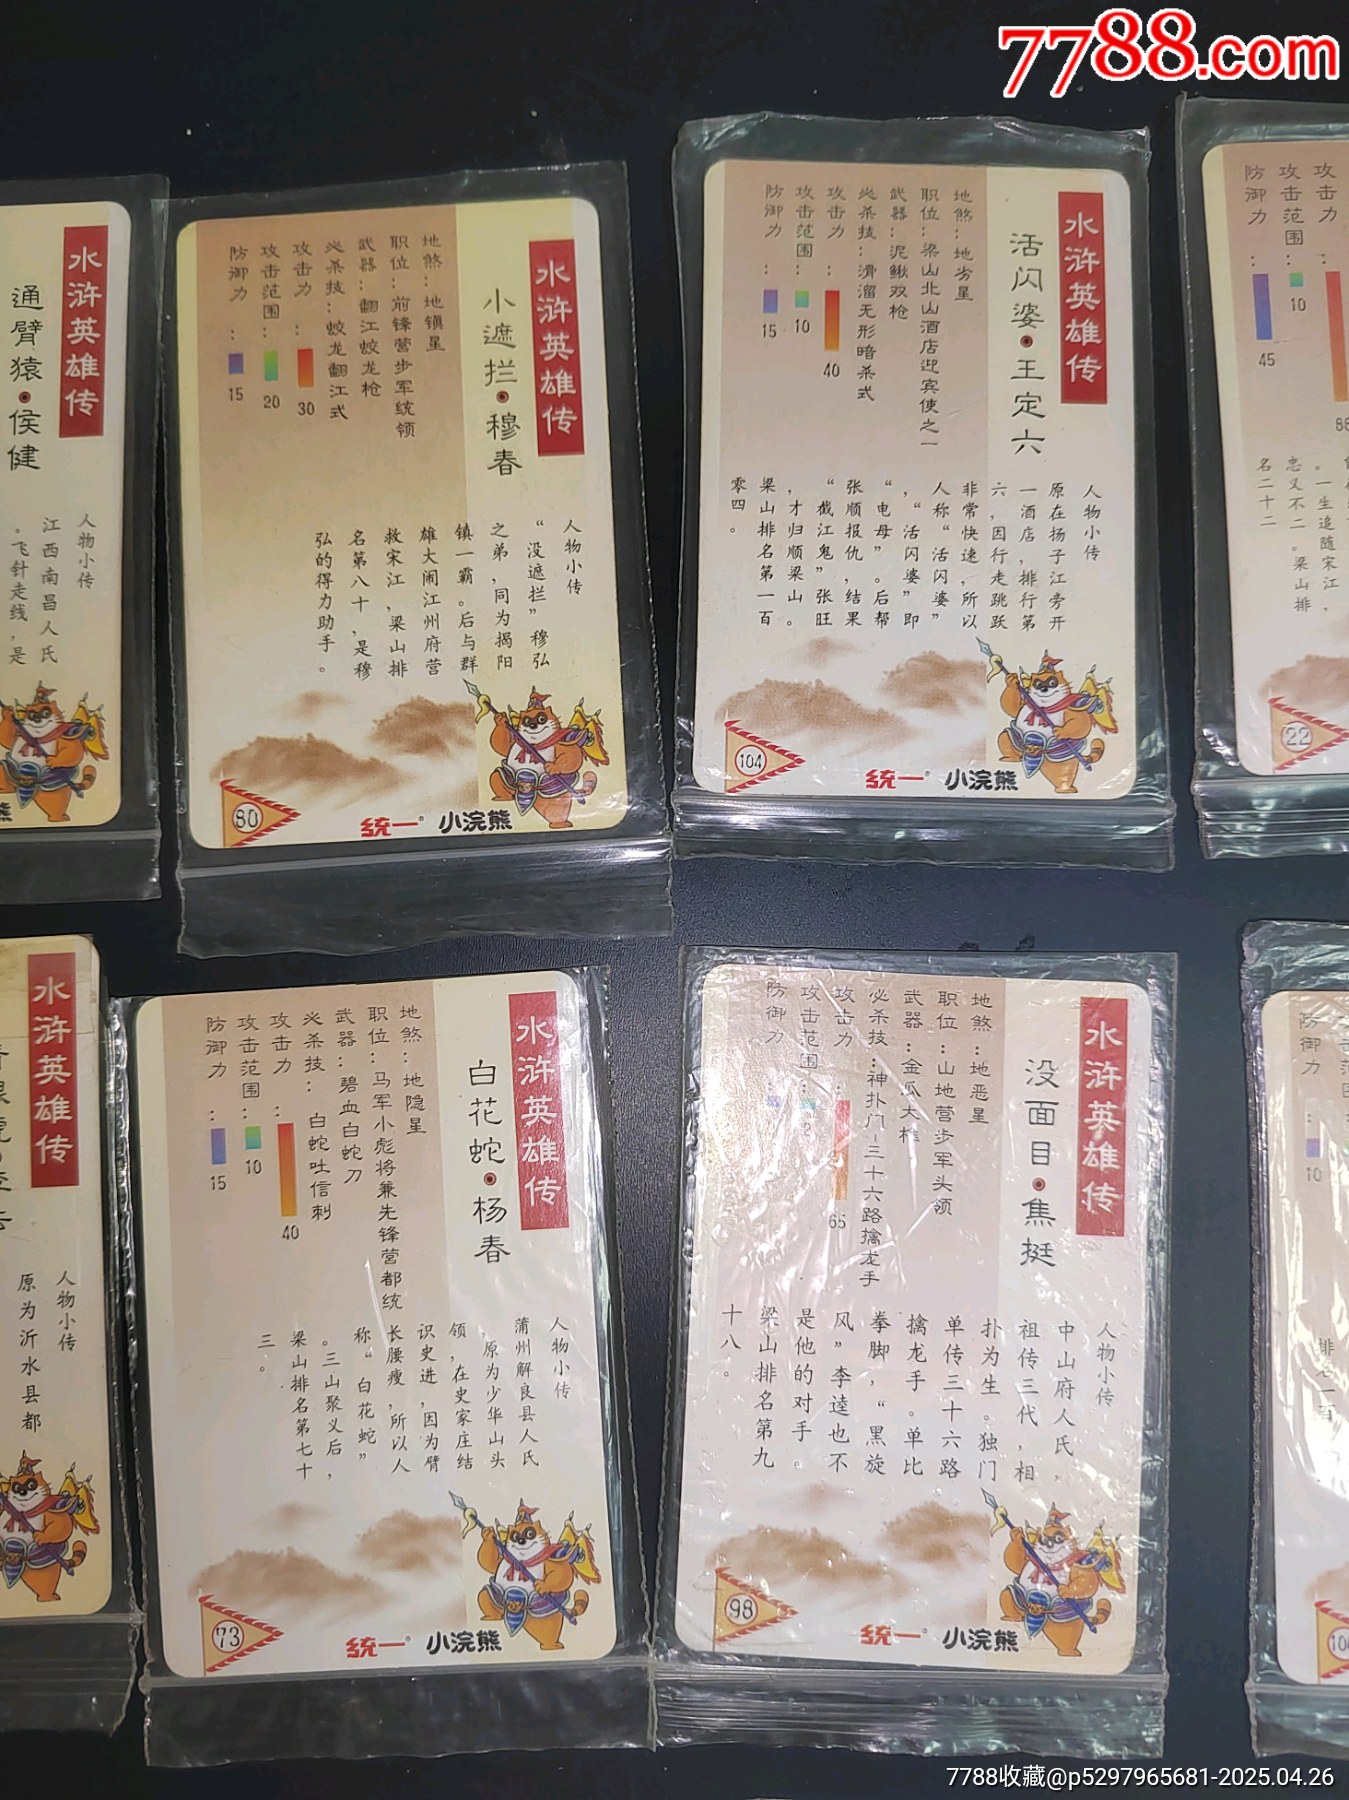 7788.com
水浒英雄传
通臂猿·侯健
人物小传
江西南昌人氏
。飞针走线，是
熊
水浒英雄传
小遮拦·穆春
地煞：地镇星
职位：前锋营步军统领
武器：翻江蛟龙枪
必杀技：蛟龙翻江式
攻击力：30
攻击范围：20
防御力：15
人物小传
“没遮拦”穆弘
之弟，同为揭阳
镇一霸。后与群
雄大闹江州府营
救宋江，梁山排
名第八十，是穆
弘的得力助手。
80
统一 小浣熊
水浒英雄传
活闪婆·王定六
地煞：地劣星
职位：梁山北山酒店迎宾使之一
武器：泥鳅双枪
必杀技：滑溜无形暗杀式
攻击力：40
攻击范围：10
防御力：15
人物小传
原在扬子江旁开
一酒店，排行第
六，因行走跳跃
非常快速，所以
人称“活闪婆”
，“活闪婆”即
“电母”。后帮
张顺报仇，结果
“截江鬼”张旺
，才归顺梁山。
梁山排名第一百
零四。
104
统一 小浣熊
攻击力：88
攻击范围：10
防御力：45
。一生追随宋江，
忠义不二。梁山排
名二十二
22
水浒英雄传
人物小传
原为沂水县都
水浒英雄传
白花蛇·杨春
地煞：地隐星
职位：马军小彪将兼先锋营都统
武器：碧血白蛇刀
必杀技：白蛇吐信刺
攻击力：40
攻击范围：10
防御力：15
人物小传
蒲州解良县人氏
，原为少华山头
领，在史家庄结
识史进，因为臂
长腰瘦，所以人
称“白花蛇”
。三山聚义后，
梁山排名第七十
三。
73
统一 小浣熊
水浒英雄传
没面目·焦挺
地煞：地恶星
职位：山地营步军头领
武器：金瓜大椎
必杀技：神扑门-三十六路擒龙手
攻击力：65
攻击范围：
防御力：
人物小传
中山府人氏，
祖传三代，相
扑为生。独门
单传三十六路
擒龙手。单比
拳脚，“黑旋
风”李逵也不
是他的对手。
梁山排名第九
十八。
98
统一 小浣熊
防御力：10
排名一百
7788收藏@p5297965681-2025.04.26